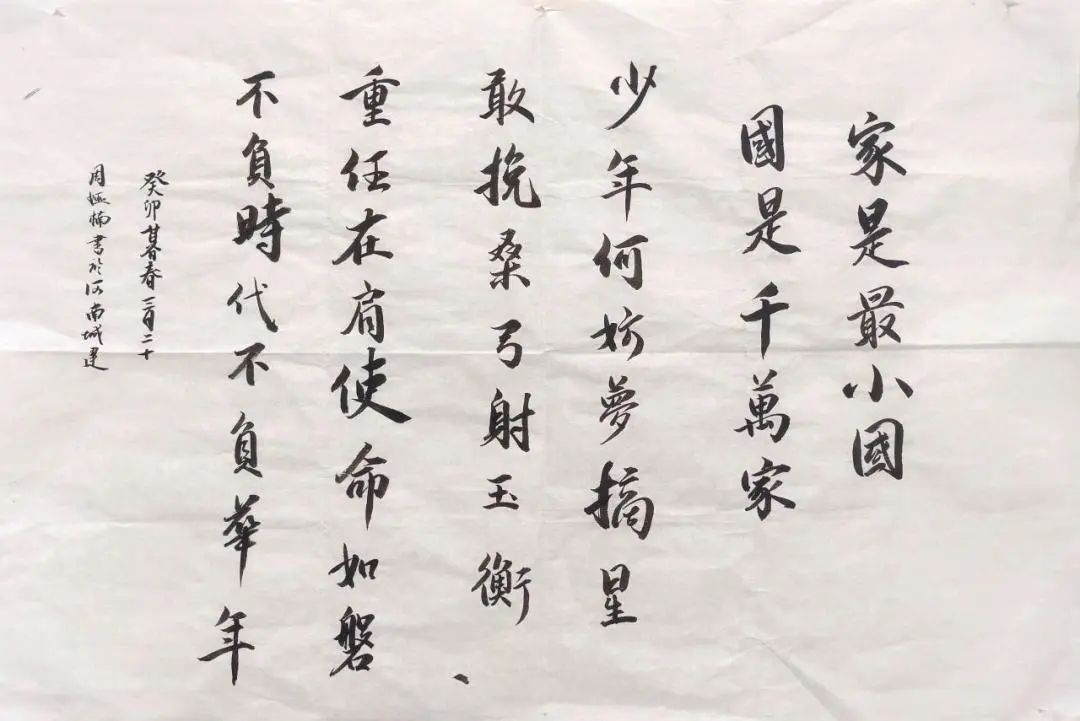 家是最小國
國是千萬家
少年何妨夢摘星
敢挽桑弓射玉衡
重任在肩使命如磐、
不負時代不負華年
癸卯暮春三月二十
周楠書於河南城建